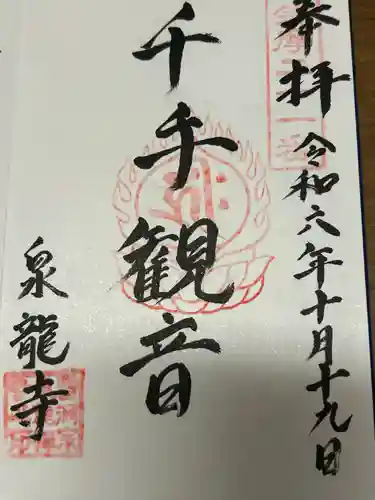 奉拝 令和六年十月十九日
千千観音
泉龍寺